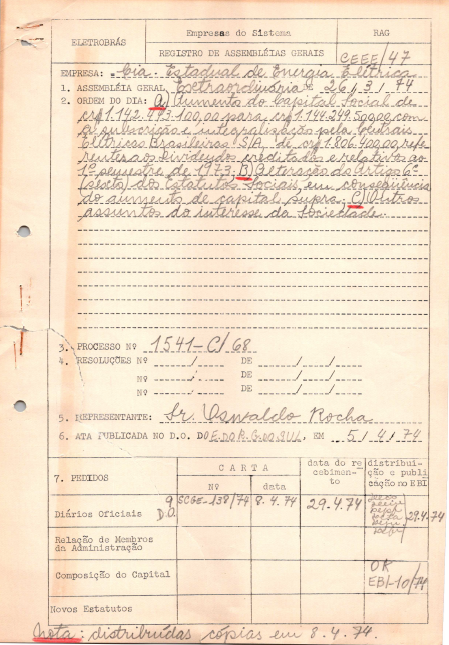 ELETROBRÁS
Empresas do Sistema
RAG
REGISTRO DE ASSEMBLÉIAS GERAIS
CEEE/47
EMPRESA: Cia. Estadual de Energia Elétrica
1. ASSEMBLÉIA GERAL Extraordinária - 26/3/74
2. ORDEM DO DIA: A) Aumento do Capital Social de
cr$ 1.142.493.100,00 para cr$ 1.144.249.500,00 com
a subscrição e integralização pela Centrais
Elétricas Brasileiras S/A de cr$ 1.806.400,00 refe-
rente aos Dividendos creditados e relativos ao
1º semestre de 1973. B) Alteração do Artigo 6º
(sexto) dos Estatutos Sociais, em consequência
do aumento de capital supra. C) Outros
assuntos do interesse da Sociedade.
3. PROCESSO Nº 1541-C/68
4. RESOLUÇÕES Nº / DE / /
Nº / DE / /
Nº / DE / /
5. REPRESENTANTE: Sr. Oswaldo Rocha
6. ATA PUBLICADA NO D.O. DO E. DO R. G. DO SUL, EM 5/4/74
7. PEDIDOS
CARTA
Nº
data
data do re
cebimen-
to
distribui-
ção e publi
cação no EBI
Diários Oficiais 9 D.O. SCGE-138/74 8.4.74 29.4.74 29.4.74
Relação de Membros
da Administração
Composição do Capital
OK
EBI-10/74
Novos Estatutos
Nota: distribuídas cópias em 8.4.74.